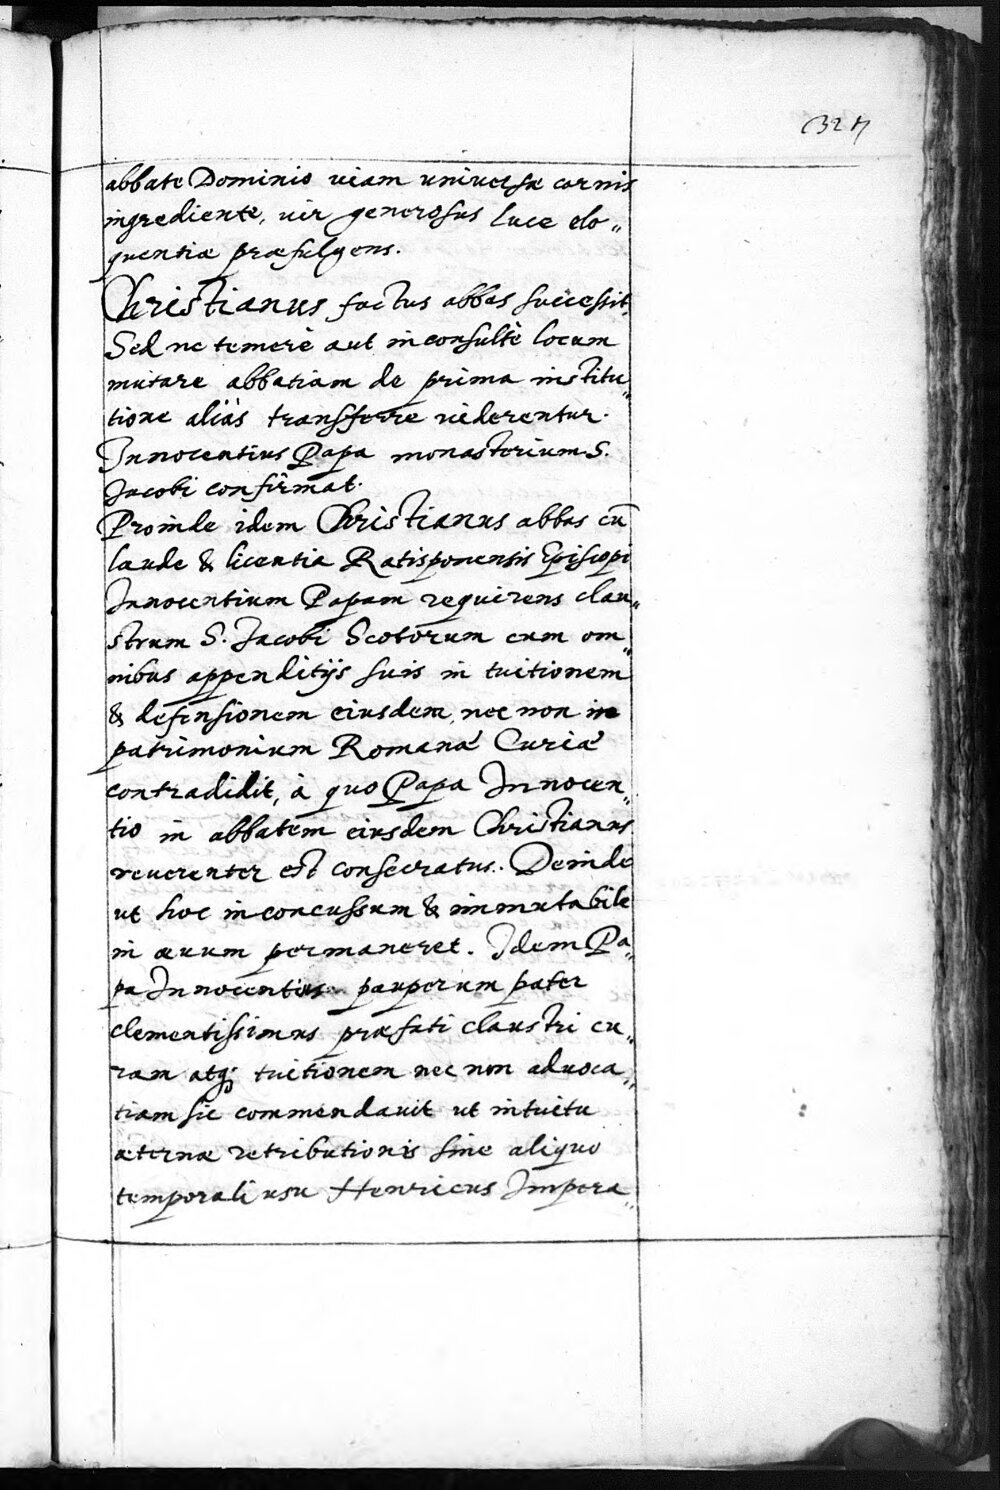 327
abbate Dominio viam universæ carnis
ingrediente, vir generosus luce elo„
quentiæ præfulgens.
Christianus factus abbas successit,
Sed ne temerè aut inconsultè locum
mutare abbatiam de prima institu„
tione aliàs transferre viderentur.
Innocentius Papa monasterium S.
Jacobi confirmat.
Proinde idem Christianus abbas cū
laude & licentia Ratisponensis Episcopi
Innocentium Papam requirens clau„
strum S. Jacobi Scotorum cum om„
nibus appenditijs suis in tuitionem
& defensionem eiusdem, nec non in
patrimonium Romanæ Curiæ
contradidit, à quo Papa Innocen„
tio in abbatem eiusdem Christianus
reuerenter est consecratus. Deinde
ut hoc inconcussum & immutabile
in æuum permaneret. Idem Pa„
pa Innocentius pauperum pater
clementissimus præfati claustri cu„
ram atq; tuitionem nec non aduoca„
tiam sic commendauit ut intuitu
æternæ retributionis sine aliquo
temporali usu Henricus Impera„